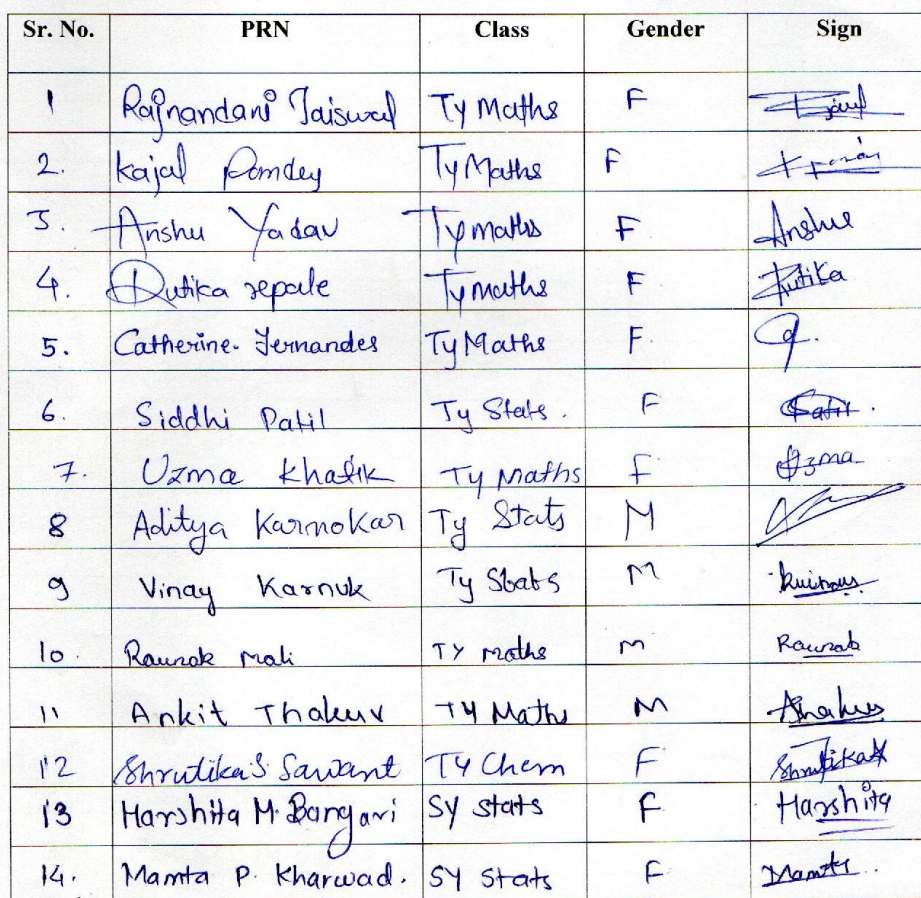 Sr. No. PRN Class Gender Sign
1 Rajnandani Jaiswal Ty Maths F
2. Kajal Pandey Ty Maths F
3. Anshu Yadav Ty maths F Anshu
4. Rutika repale Ty maths F Rutika
5. Catherine. Fernandes Ty Maths F.
6. Siddhi Patil Ty Stats. F Patil.
7. Uzma Khatik Ty Maths F Uzma
8 Aditya Karmokar Ty Stats M
9 Vinay Karnuk Ty Stats M
10. Raunak Mali TY Maths M Raunak
11 Ankit Thakur TY Maths M Thakur
12 Shrutika S Sawant TY Chem F Shrutika
13 Harshita M. Bangari SY Stats F Harshita
14. Mamta P. Kharwad. SY Stats F Mamta